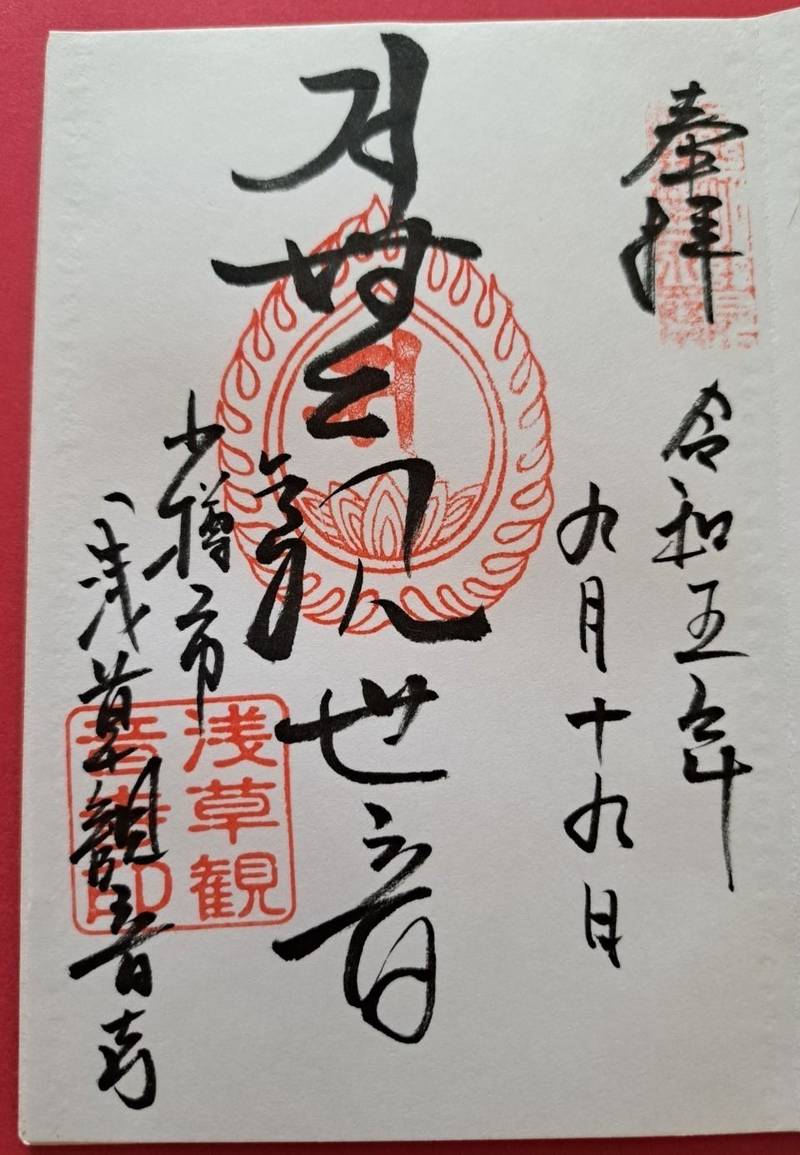 奉拝
令和五年
九月十九日
観世音
小樽市
浅草観音寺
浅草観
音寺印